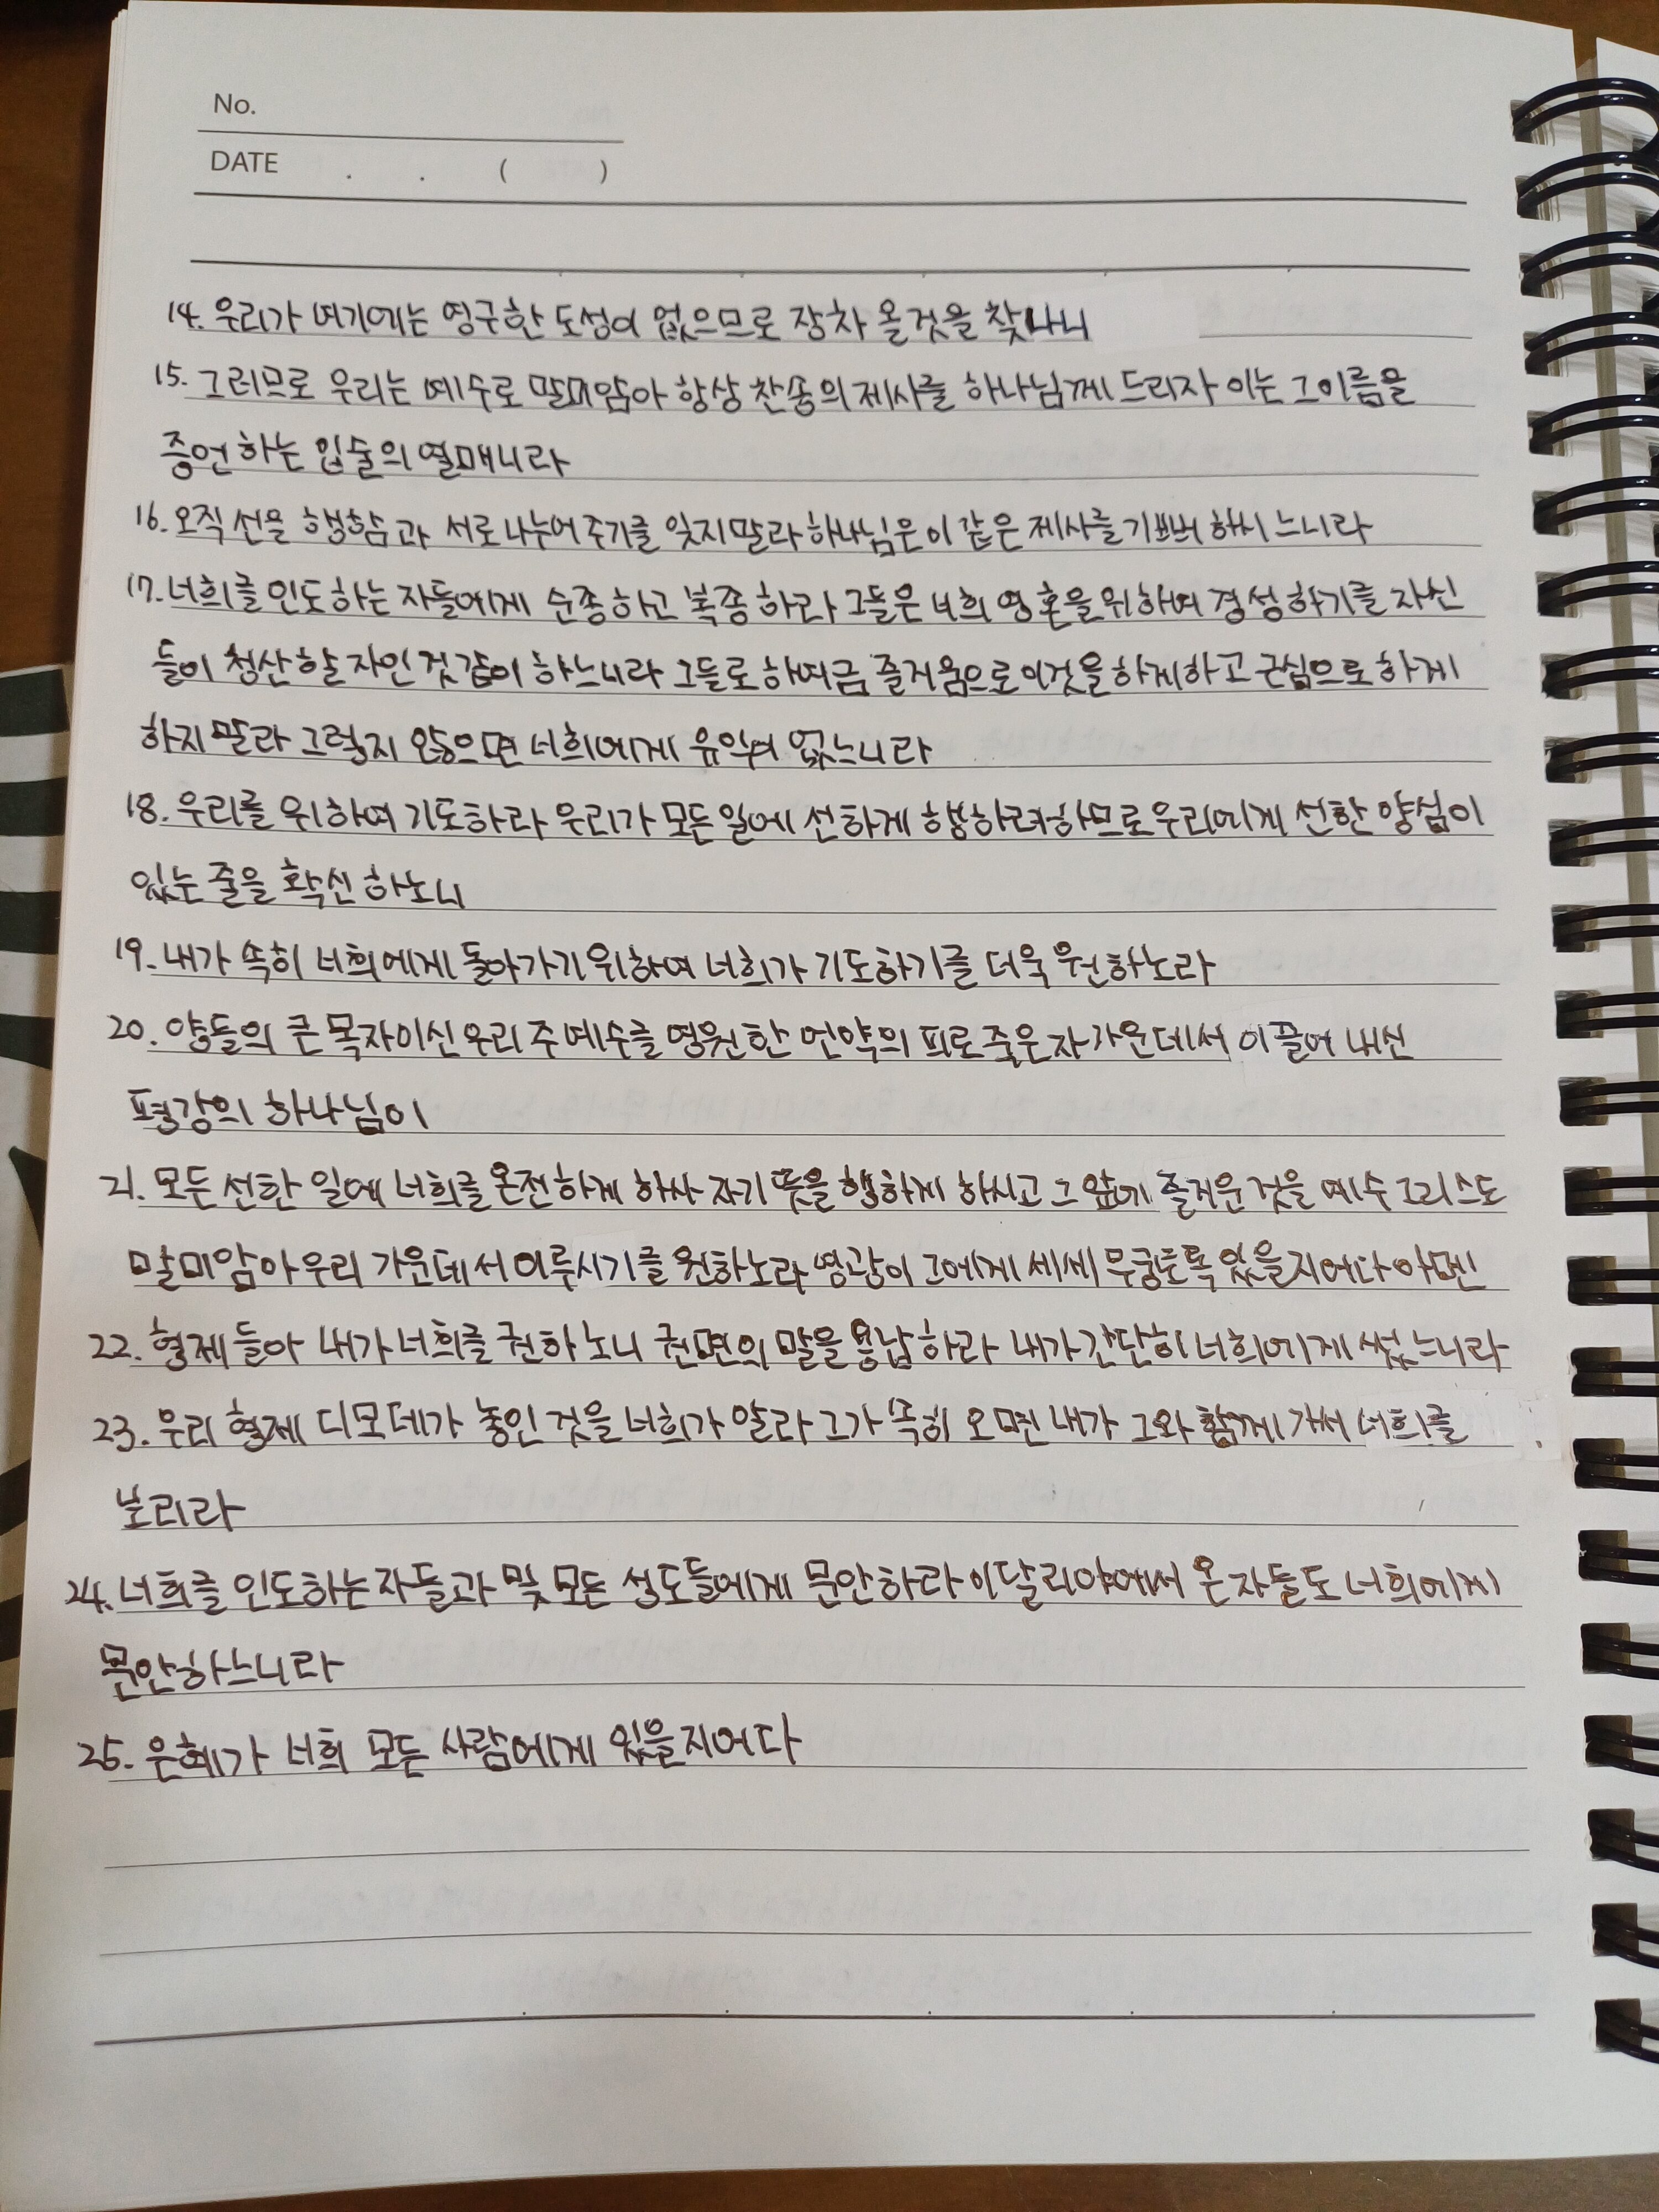 No.
DATE . . ( )
14. 우리가 여기에는 영구한 도성이 없으므로 장차 올것을 찾나니
15. 그러므로 우리는 예수로 말미암아 항상 찬송의 제사를 하나님께 드리자 이는 그이름을
증언하는 입술의 열매니라
16. 오직 선을 행함과 서로 나누어 주기를 잊지말라 하나님은 이 같은 제사를 기뻐 하시느니라
17. 너희를 인도하는 자들에게 순종하고 복종하라 그들은 너희 영혼을 위하여 경성하기를 자신
들이 청산할 자인 것 같이 하느니라 그들로 하여금 즐거움으로 이것을 하게하고 근심으로 하게
하지말라 그렇지 않으면 너희에게 유익이 없느니라
18. 우리를 위하여 기도하라 우리가 모든 일에 선하게 행하려하므로 우리에게 선한 양심이
있는 줄을 확신하노니
19. 내가 속히 너희에게 돌아가기 위하여 너희가 기도하기를 더욱 원하노라
20. 양들의 큰 목자이신 우리 주 예수를 영원한 언약의 피로 죽은 자 가운데서 이끌어 내신
평강의 하나님이
21. 모든 선한 일에 너희를 온전하게 하사 자기 뜻을 행하게 하시고 그 앞에 즐거운 것을 예수 그리스도
말미암아 우리 가운데서 이루시기를 원하노라 영광이 그에게 세세 무궁토록 있을지어다 아멘
22. 형제들아 내가 너희를 권하노니 권면의 말을 용납하라 내가 간단히 너희에게 썼느니라
23. 우리 형제 디모데가 놓인 것을 너희가 알라 그가 속히 오면 내가 그와 함께 가서 너희를
보리라
24. 너희를 인도하는 자들과 및 모든 성도들에게 문안하라 이달리야에서 온 자들도 너희에게
문안하느니라
25. 은혜가 너희 모든 사람에게 있을지어다